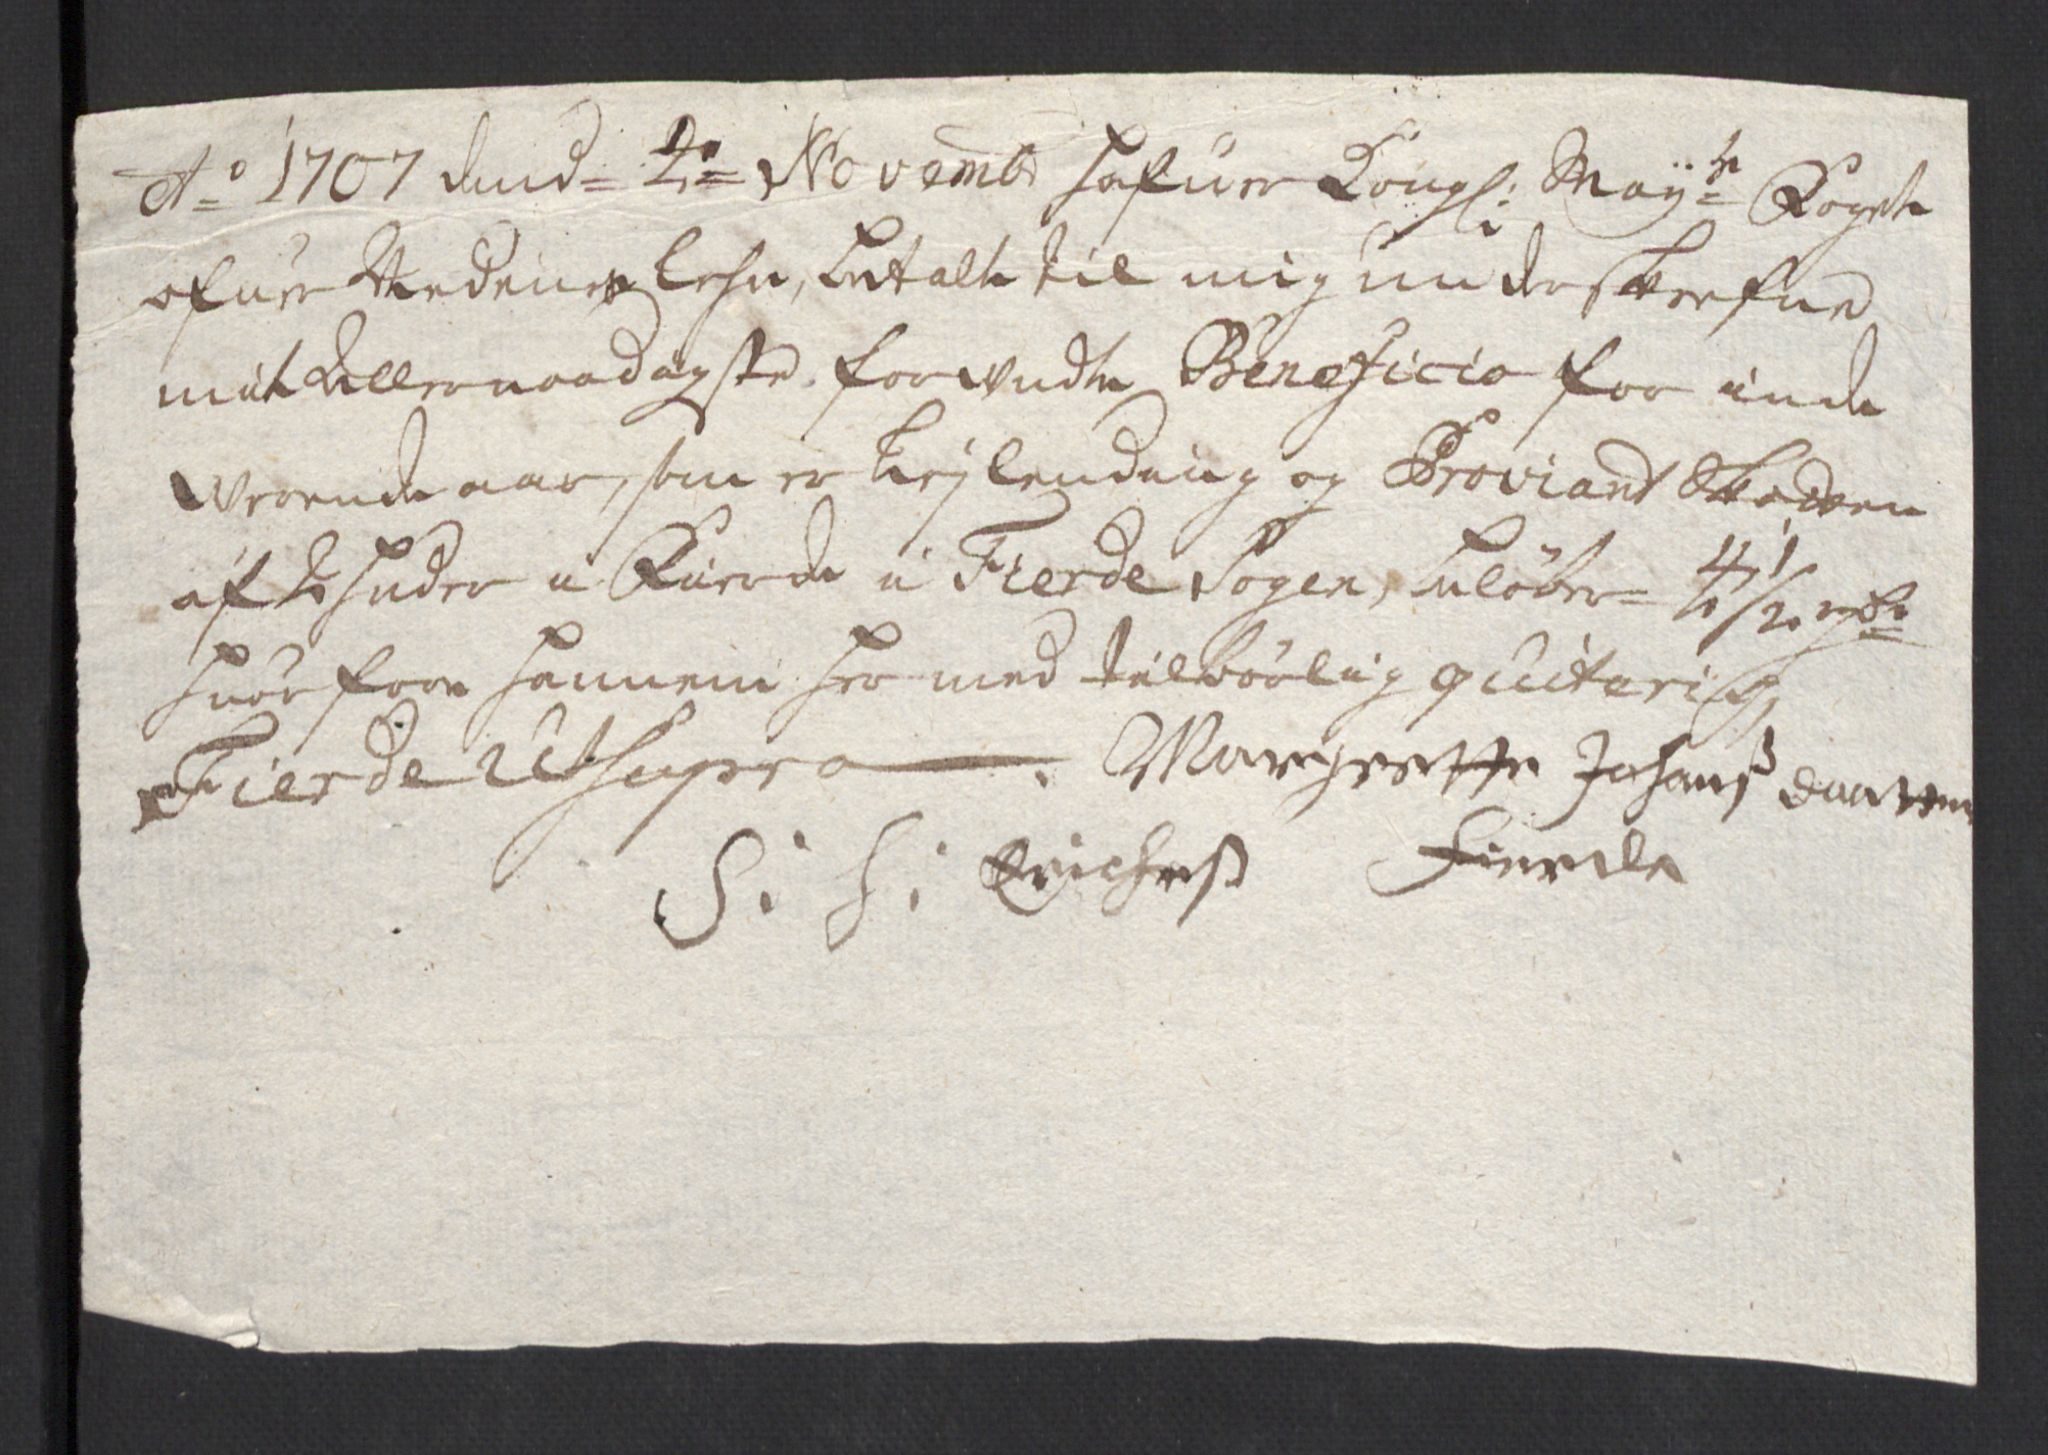 Ao 1707 dend 2o Novemb hafuer Kongl: Mayts Fogett
ofuer Nedenes lehn, betalt til mig underskrefne
mit allernaadigste forundte Beneficio for inde
werende aar, som er Leylending og Proviant Skatten
af 2 huder i Kierde i Fierde Sogen, beløber 4 1/2 rdr
huorfore hannem her med tilbørlig quiterig
Fierde Ut supra. Margrette Johans daatter
S: H: Erichss Fierde